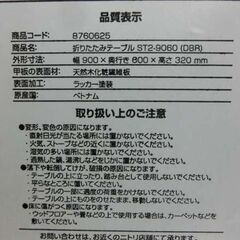 品質表示
商品コード: 8760625
商品名: 折りたたみテーブル ST2-9060 (DBR)
外形寸法: 幅 900 × 奥行き 600 × 高さ 320 mm
甲板の表面材: 天然木化粧繊維板
表面加工: ラッカー塗装
原産国: ベトナム
取り扱い上のご注意
●変形、変色の原因となりますので、
・直射日光が当たる場所には置かないでください。
・火気、ストーブなどの近くに置かないでください。
・湿気の多い場所には置かないでください。
・テーブルの上に熱い物を直接置かないでください。
●落下や転倒してけがの原因となりますので、
・テーブルの上に立ったり、踏み台として使用しないでください。
・平らなところに置いてください。
・テーブルの上で過度の荷重をかけないでください。
●床に傷がつく原因となりますので、
・ウッドフロアーや畳などで使用する際は、カーペットなどを
敷いてください。
お問い合わせは、お近くのニトリ店舗にて承ります。